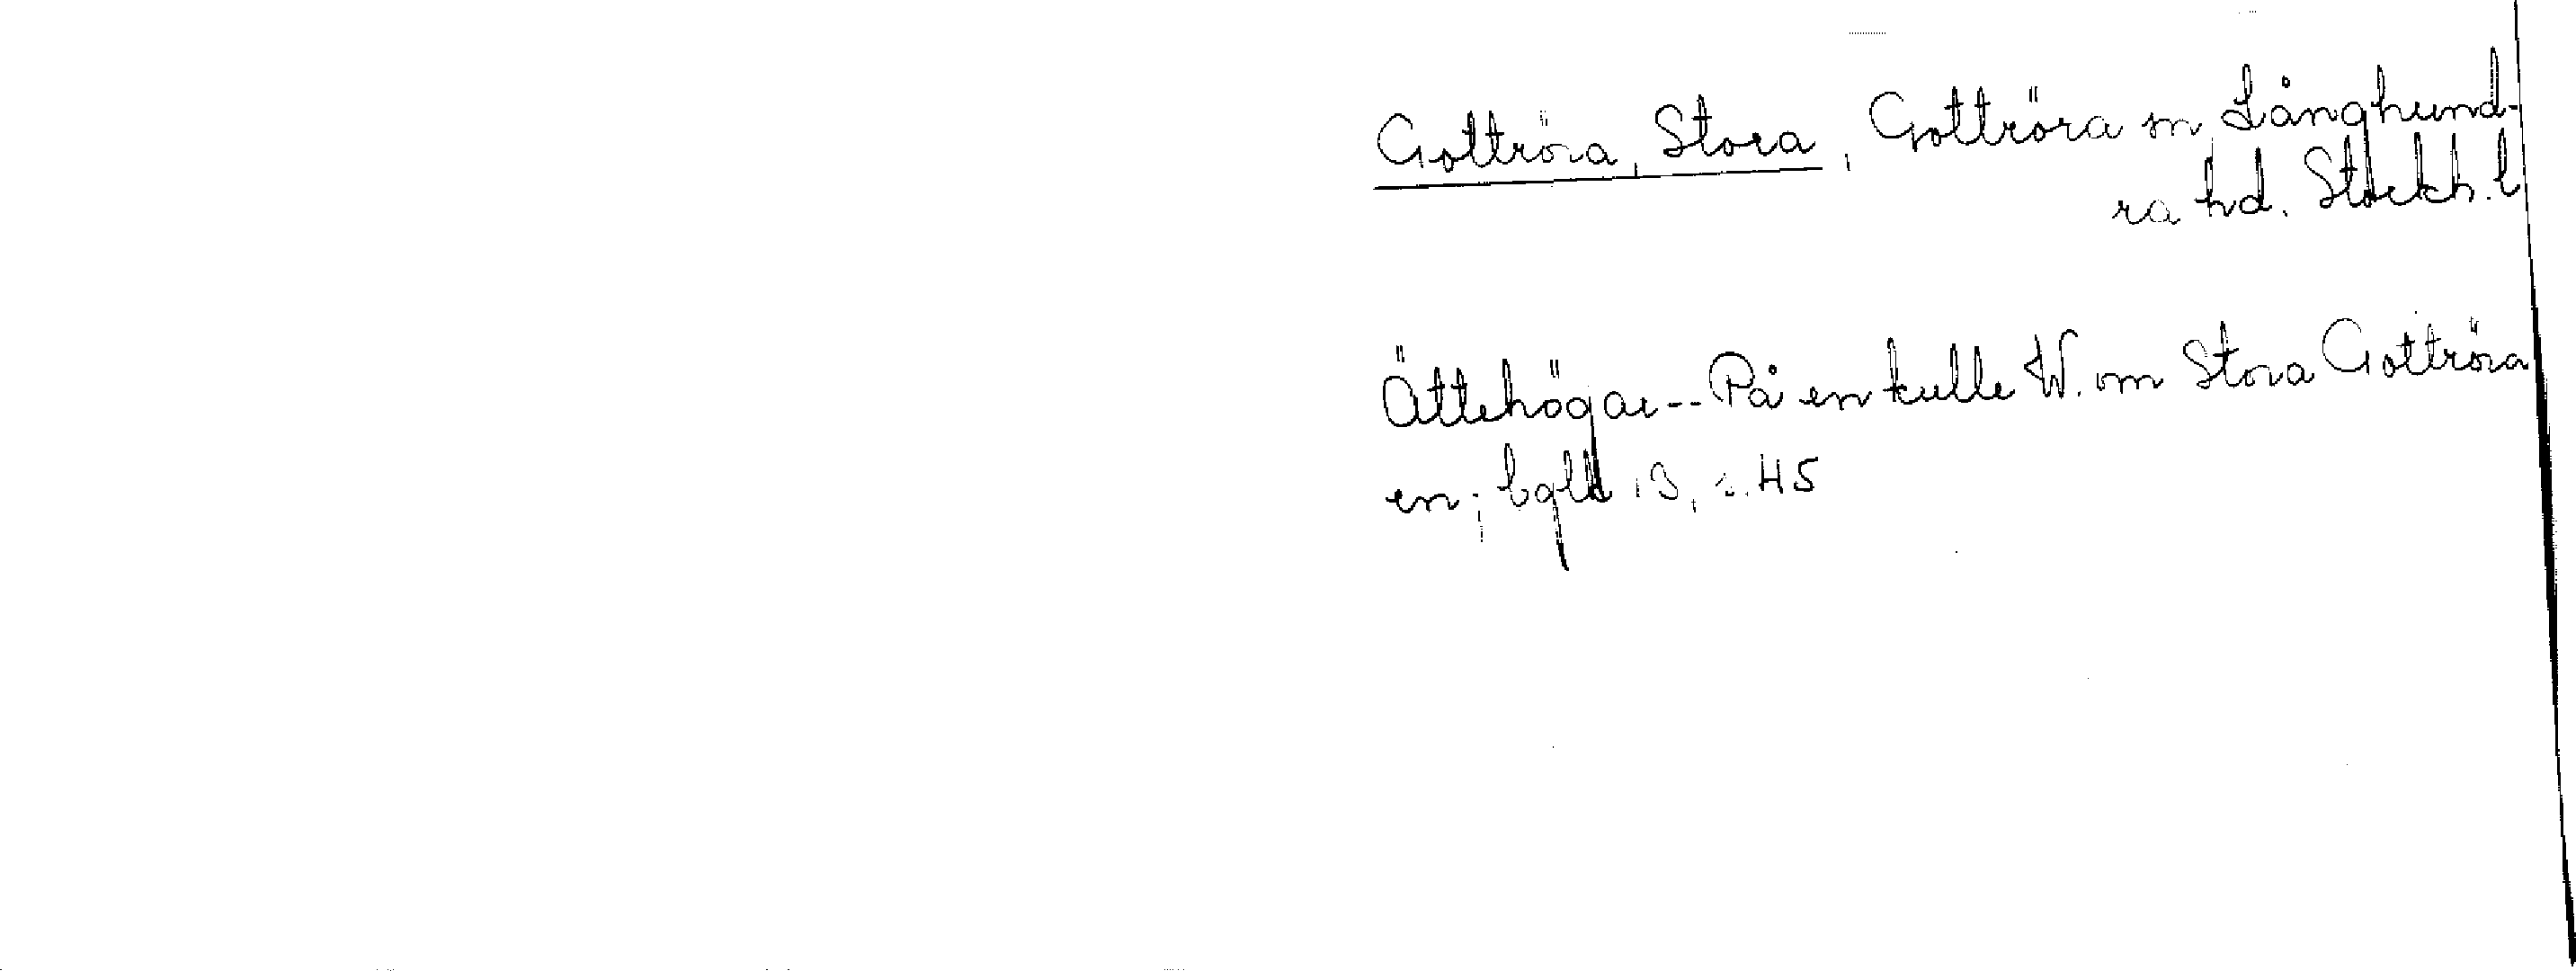 Gottröra, Stora, Gottröra sn, Långhund-
ra hd. Stockh. l
Ättehögar -- På en kulle W. om Stora Gottröra
en; bgld 13, s. 45